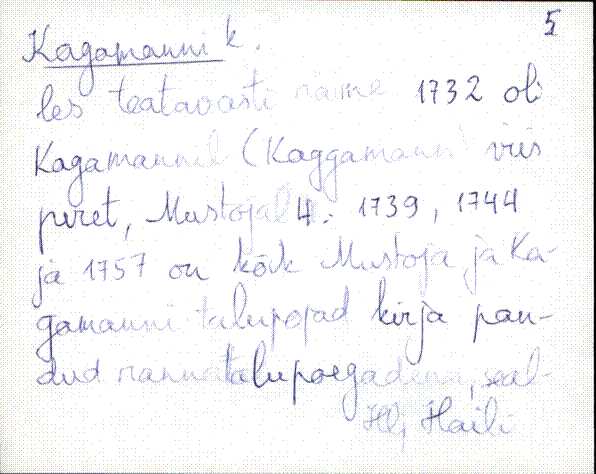 5
Kagamanni k.
les teatavasti name 1732 oli
Kagamannil (Kaggamann viis
peret, Mustojal 4. 1739, 1744
ja 1757 on kõik Mustoja ja Ka-
gamanni talupojad kirja pan-
dud rannatalupoegadena, seal-
Hlj, Haili